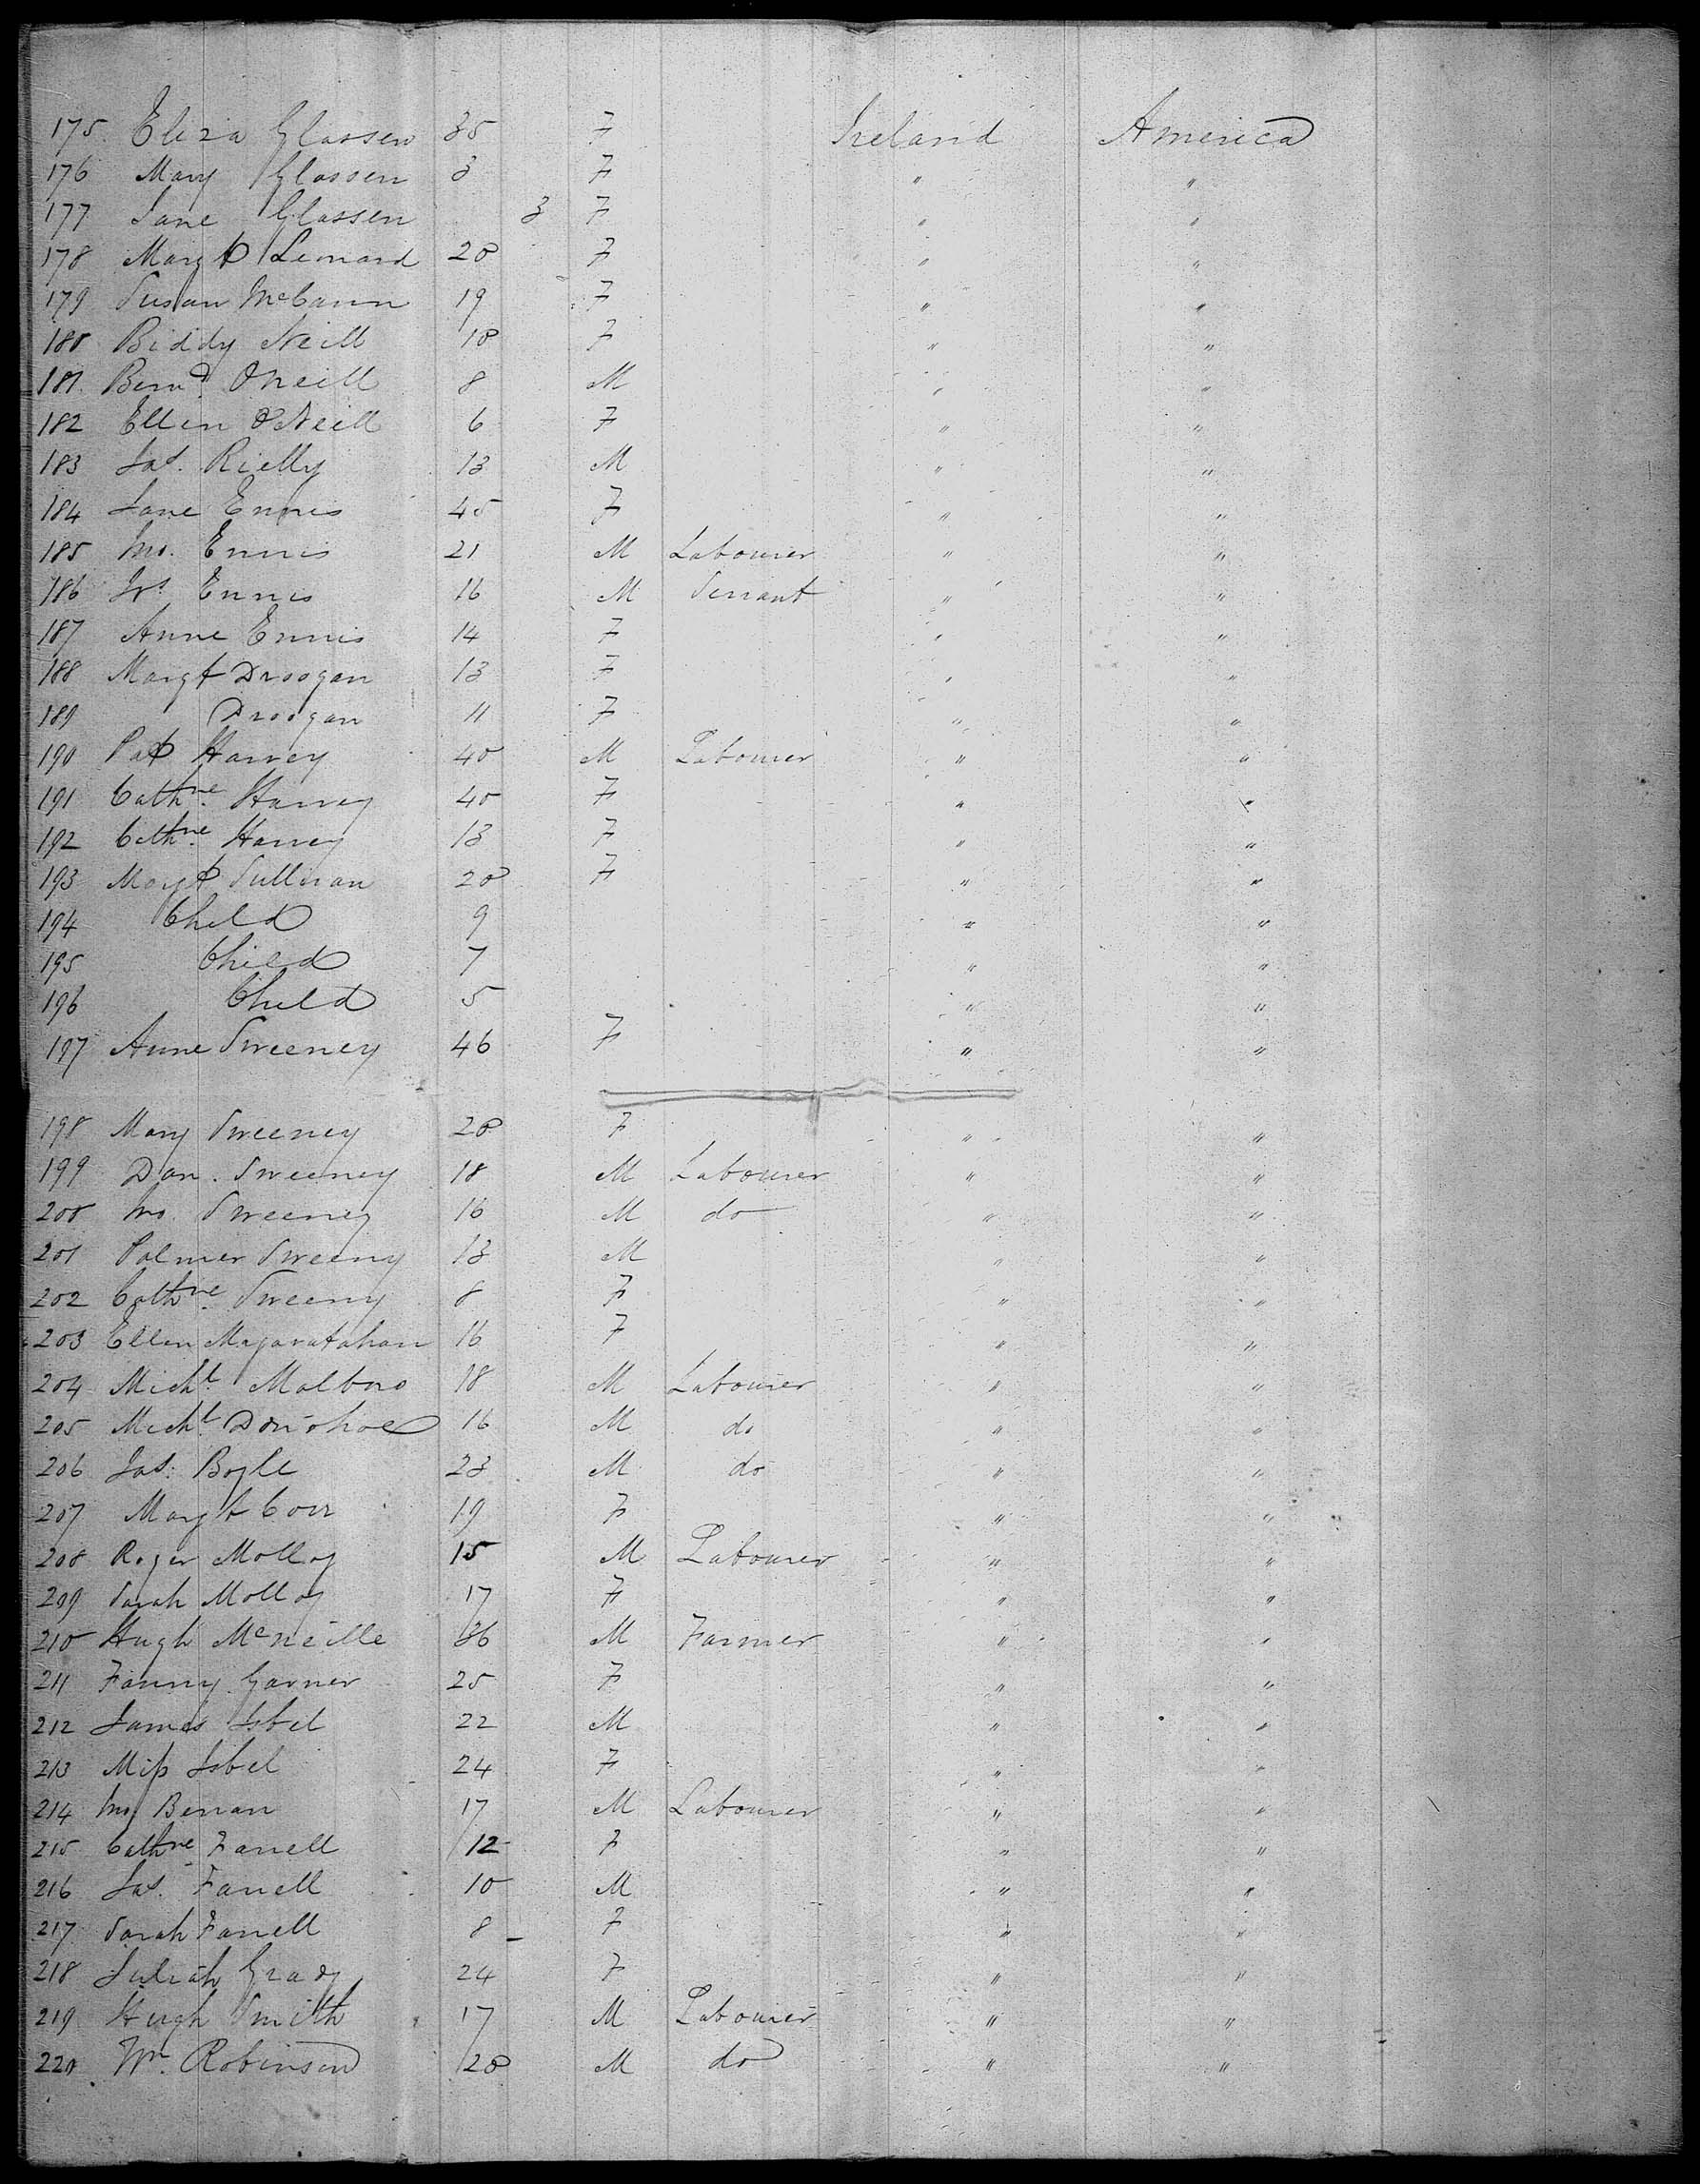 175 Eliza Glassen 35 F Ireland America
176 Mary Glassen 3 F " "
177 Jane Glassen 3 F " "
178 Margt Lennard 20 F " "
179 Susan McCann 19 F " "
180 Biddy Neill 18 F " "
181 Bernd. ONeill 8 M " "
182 Ellen ONeill 6 F " "
183 Jas. Rielly 13 M " "
184 Jane Ennis 45 F " "
185 Jno. Ennis 21 M Labourer " "
186 Ennis 16 M Servant " "
187 Anne Ennis 14 F " "
188 Margt Droogan 13 F " "
189 Droogan 11 F " "
190 Pat Harvey 40 M Labourer " "
191 Cathne. Harvey 40 F " "
192 Cathne. Harvey 13 F " "
193 Margt Sullivan 20 F " "
194 Child 9 " "
195 Child 7 " "
196 Child 5 " "
197 Anne Sweeney 46 F " "
198 Mary Sweeney 20 F " "
199 Dan. Sweeney 18 M Labourer " "
200 Jno. Sweeney 16 M do " "
201 Palmer Sweeny 13 M " "
202 Cathne. Sweeny 8 F " "
203 Ellen 16 F " "
204 Michl. 18 M Labourer " "
205 Michl. Donohoe 16 M do " "
206 Jas. Boyle 23 M do " "
207 Margt Corr 19 F " "
208 Roger Molloy 15 M Labourer " "
209 Sarah Molloy 17 F " "
210 Hugh McNeille 36 M Farmer " "
211 Fanny Garner 25 F " "
212 James Isbel 22 M " "
213 Miss Isbel 24 F " "
214 Jno. 17 M Labourer " "
215 Cathne Farrell 12 F " "
216 Jas. Farrell 10 M " "
217 Sarah Farrell 8 F " "
218 Juliah Grady 24 F " "
219 Hugh Smith 17 M Labourer " "
220 Wm. Robinson 20 M do " "